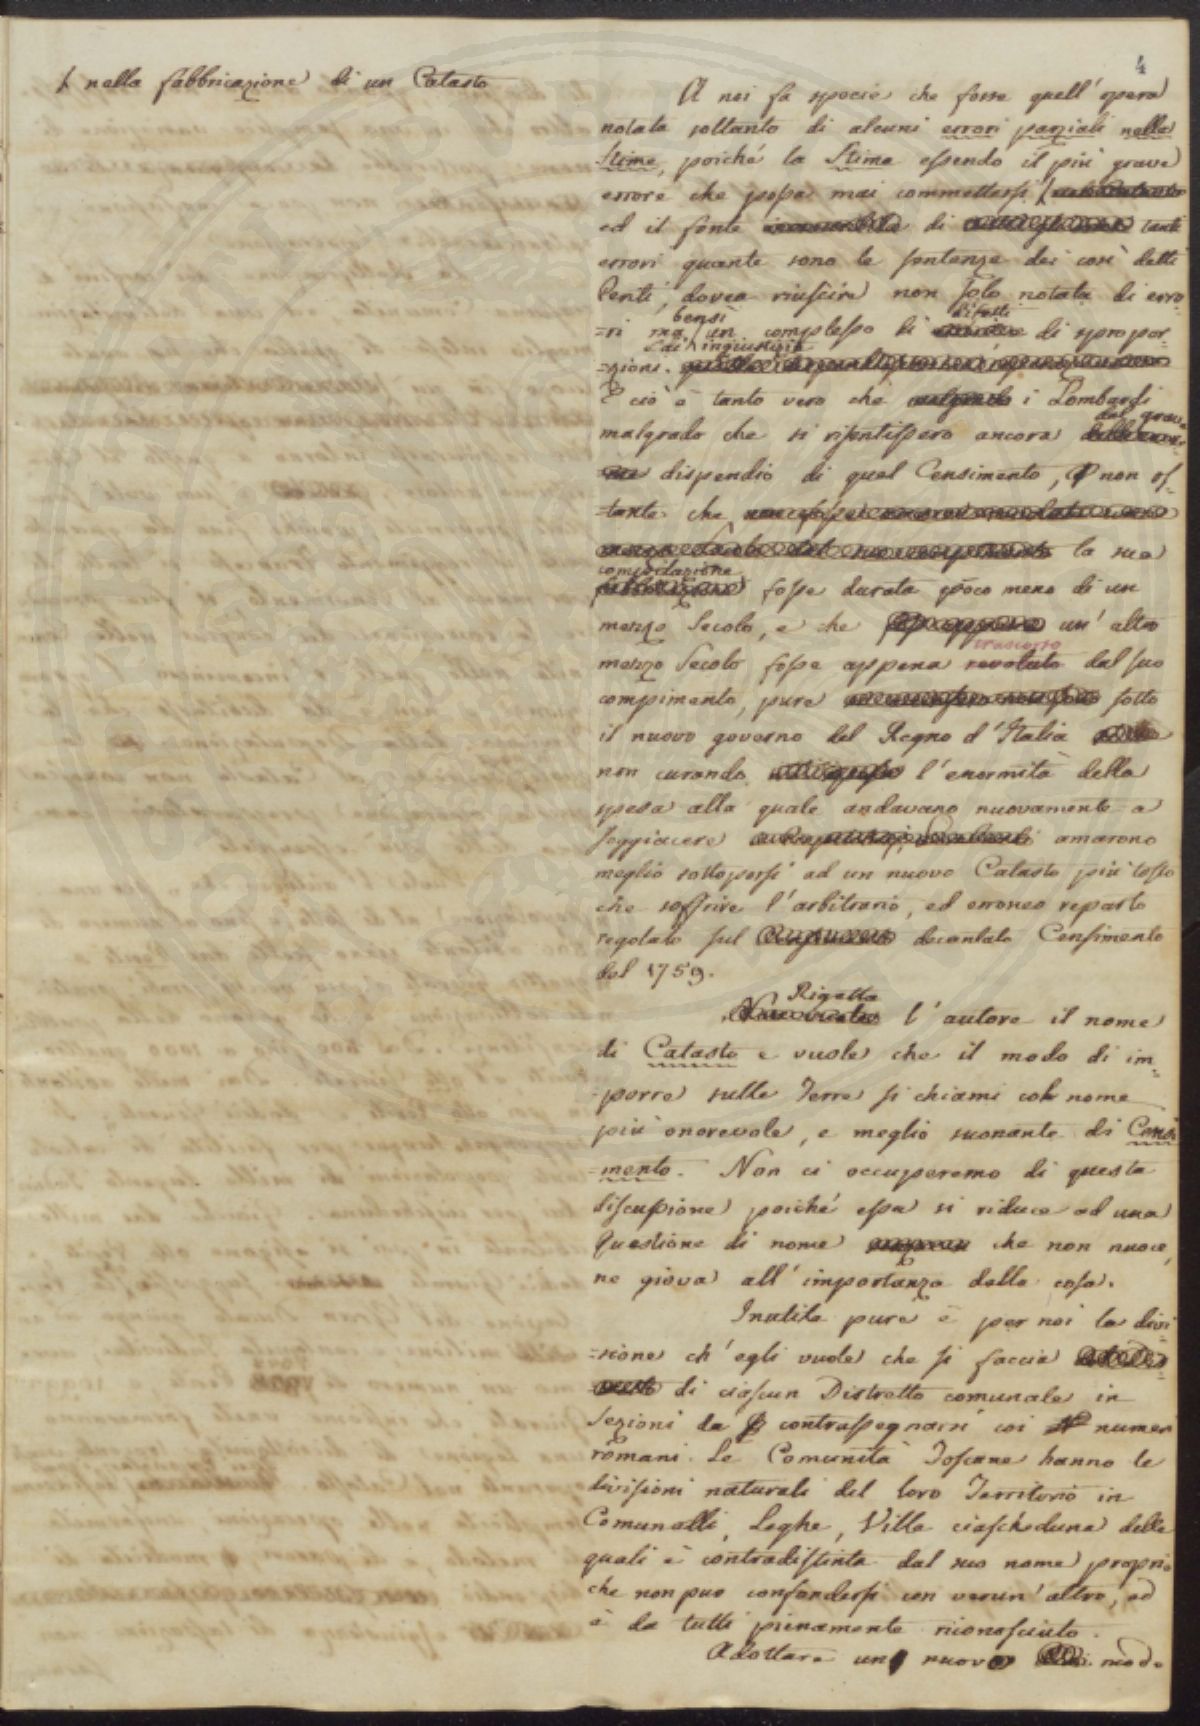 4
/ nella fabbricazione di un Catasto
A noi fa specie che fosse quell'opera
notata soltanto di alcuni errori parziali nelle
Stime, poiché la Stima essendo il piú grave
errore che possa mai commettersi /
ed il fonte di tanti
errori quante sono le sentenze dei cosí detti
Periti, dovea riuscire non solo notata di erro-
bensí difetti
=ri ma / un complesso di di spropor-
d'ingiustizia
=zioni.
E ció è tanto vero che malgrado i Lombardi
dal grave
malgrado che si risentissero ancora
dispendio di quel Censimento, e non os-
=tante che
la sua
compilazione
fosse durata poco meno di un
mezzo Secolo, e che un'altro
trascorso
mezzo Secolo fosse appena revoluto dal suo
compimento, pure sotto
il nuovo governo del Regno d'Italia
non curando l'enormità della
spesa alla quale andavano nuovamente a
soggiacere amarono
meglio sottoporsi ad un nuovo Catasto piú tosto
che soffrire l'arbitrario, ed erroneo reparto
regolato sul decantato Censimento
del 1759.
Rigetta
l'autore il nome
di Catasto e vuole che il modo di im-
=porre sulle Terre si chiami col nome
piú onorevole, e meglio suonante di Censi
=mento. Non ci occuperemo di questa
discussione poiché essa si riduce ad una
questione di nome che non nuoce,
ne giova all'importanza della cosa.
Inutile pure è per noi la divi
=sione ch'egli vuole che si faccia
di ciascun Distretto comunale in
Sezioni da contrassegnarsi coi numeri
romani. Le Comunità Toscane hanno le
divisioni naturali del loro Territorio in
Comunelli, Leghe, Ville ciascheduna delle
quali è contradistinta dal suo nome proprio
che non puo confondersi con verun'altro, ed
è da tutti pienamente riconosciuto.
Adottare un nuovo modo